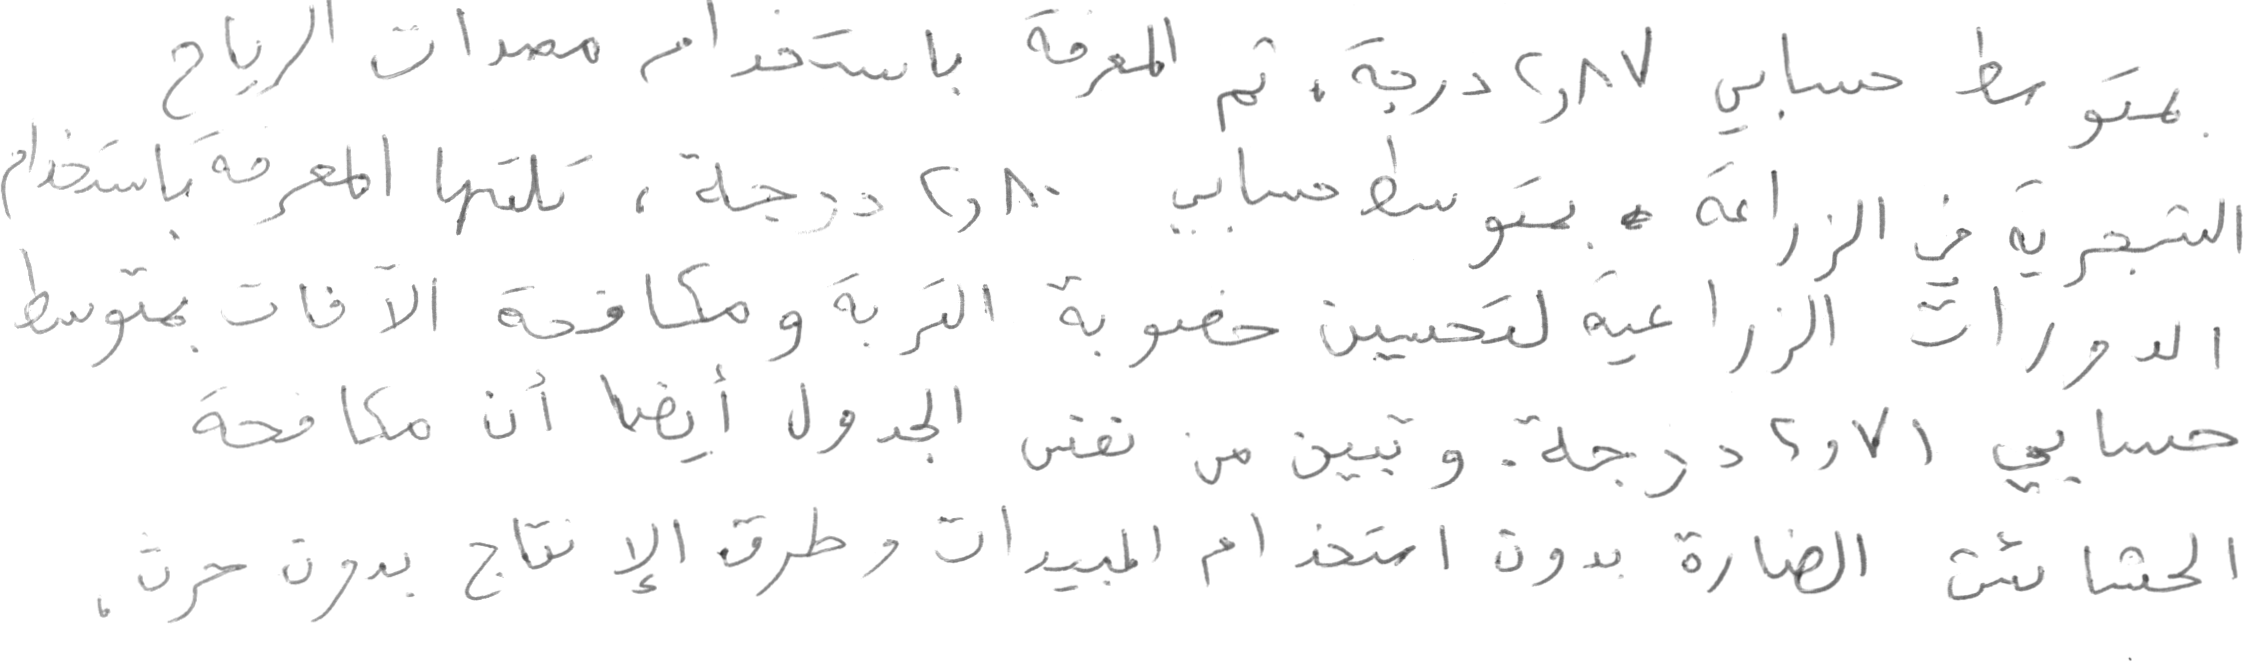 بمتوسط حسابي ٢,٨٧ درجة، تم المعرفة باستخدام مصدات الرياح
الشجرية في الزراعة بمتوسط حسابي ٢,٨٠ درجة، تلتها المعرفة باستخدام
الدورات الزراعية لتحسين خصوبة التربة ومكافحة الآفات بمتوسط
حسابي ٢,٧١ درجة. وتبين من نفس الجدول أيضا أن مكافحة
الحشائش الضارة بدون استخدام المبيدات وطرق الإنتاج بدون حرث،